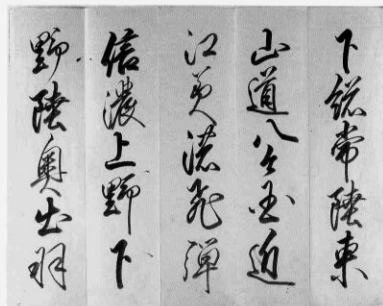 下総常陸東
山道八ケ国近
江美濃飛弾
信濃上野下
野陸奥出羽